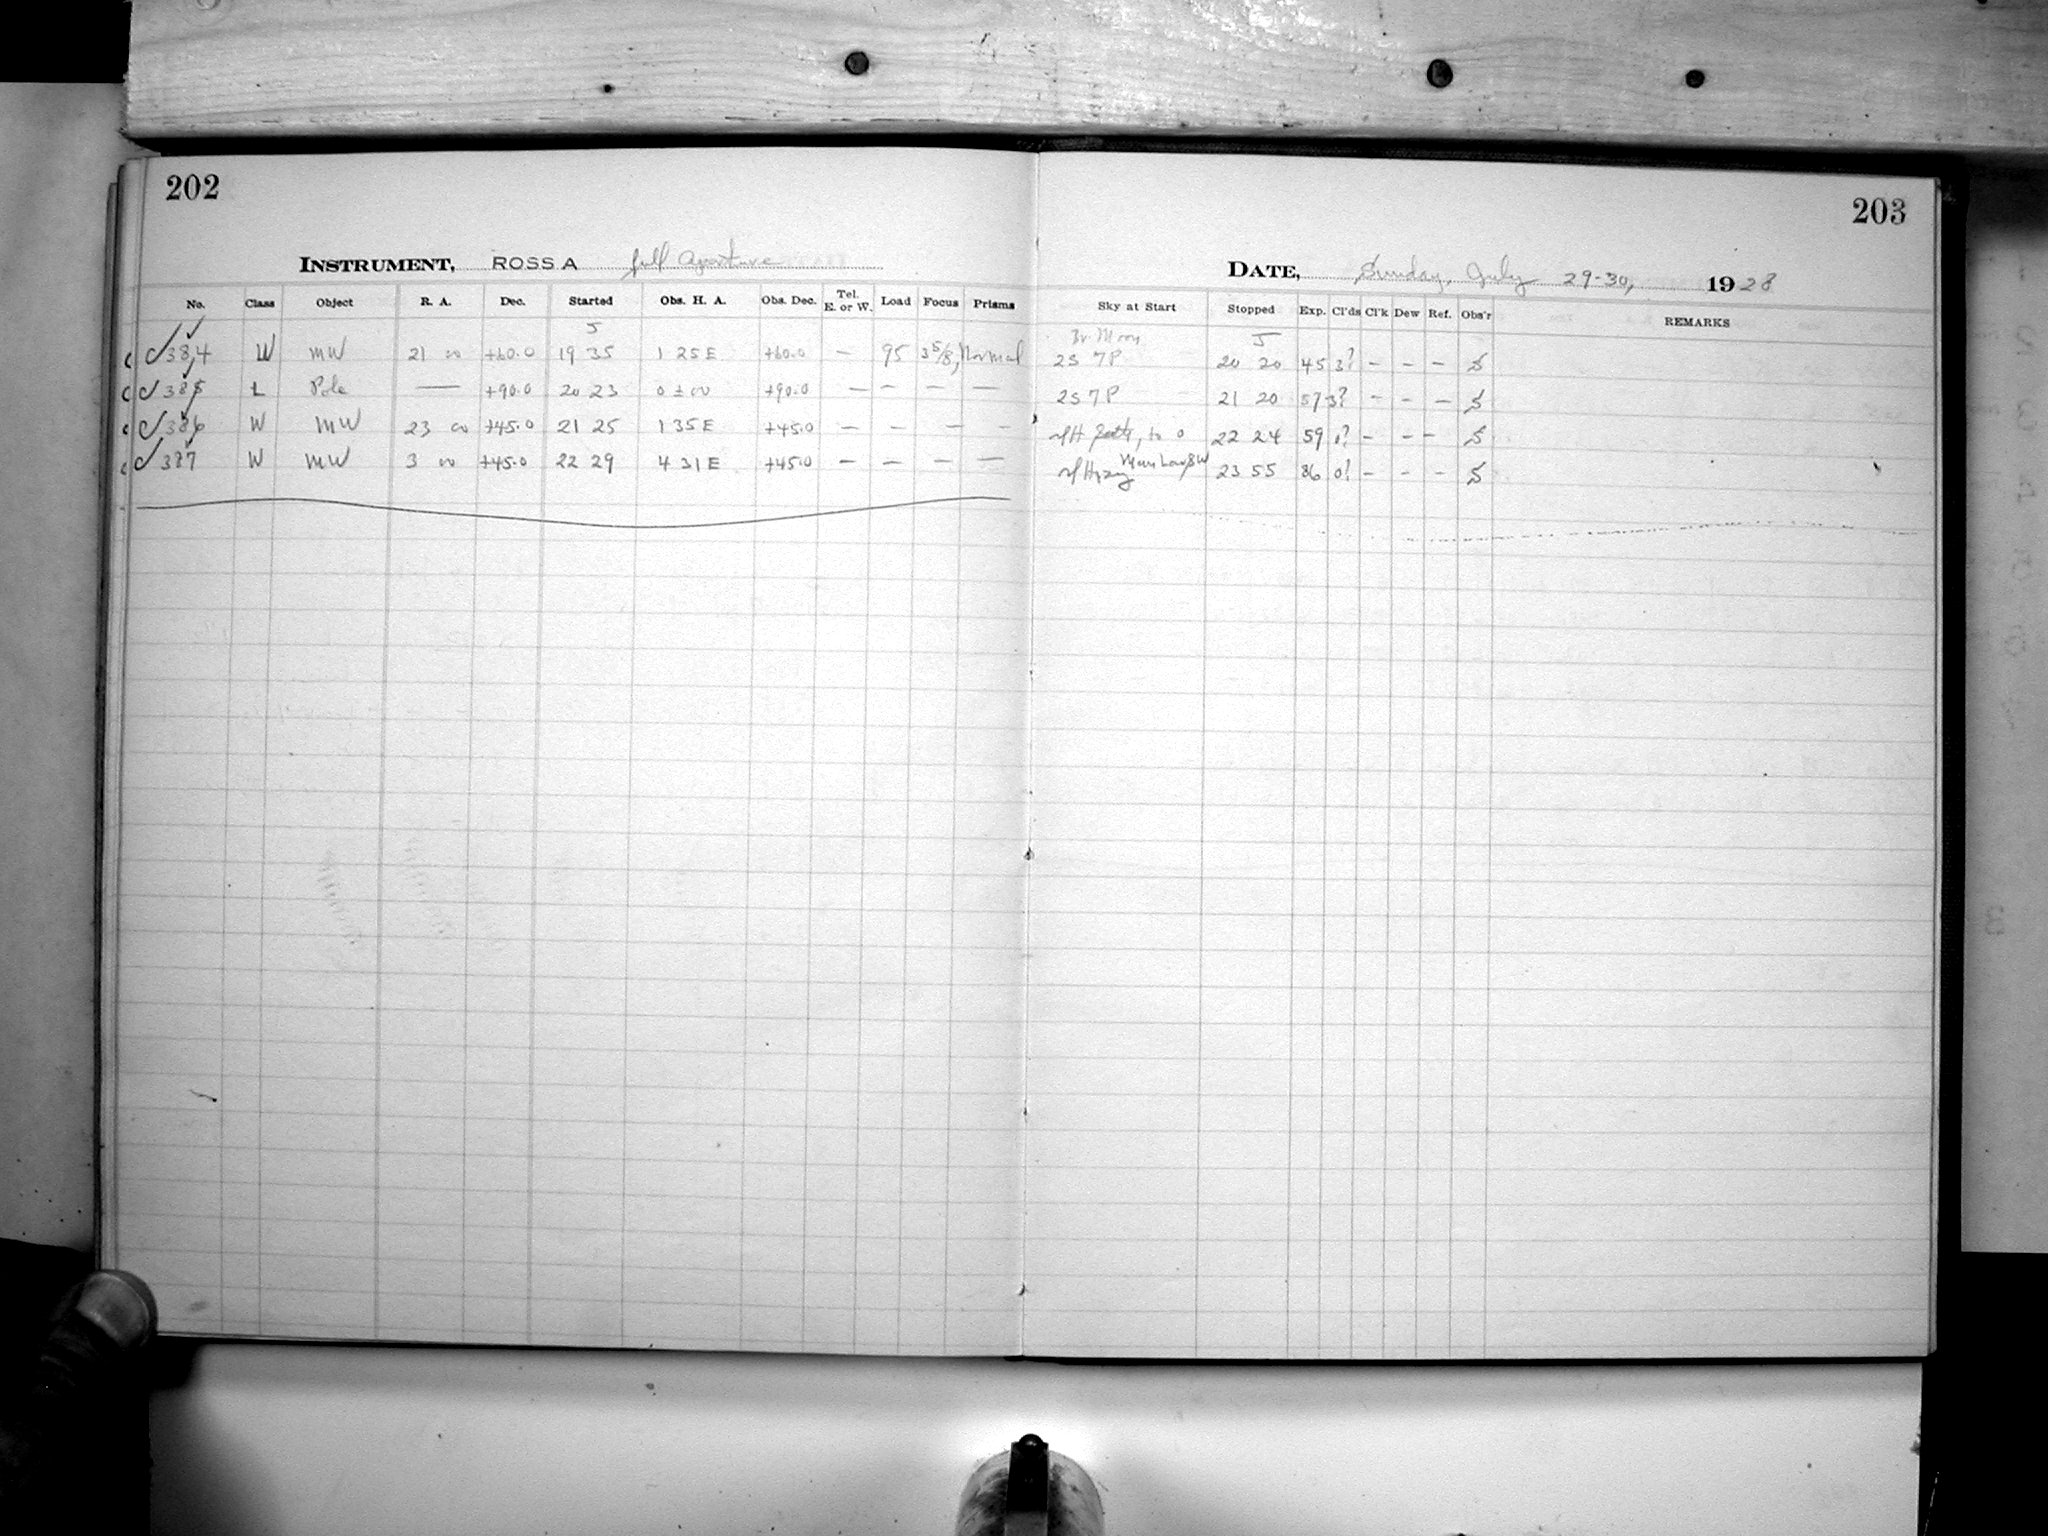 202
203
INSTRUMENT, ROSS A full aperture
DATE, Sunday, July 29-30, 1928
No. Class Object R. A. Dec. Started Obs. H. A. Obs. Dec. Tel. E. or W. Load Focus Prisms
Sky at Start Stopped Exp. Cl'ds Cl'k Dew Ref. Obs'r REMARKS
J Br. Moon J
384 W MW 21 00 +60.0 19 35 1 25 E +60.0 — 95 3 5/8, Normal 2S 7P 20 20 45 3? – – – S
385 L Pole — +90.0 20 23 0 ± 00 +90.0 — — — — 2S 7P 21 20 57 3? – – – S
386 W MW 23 00 +45.0 21 25 1 35 E +45.0 — — — — to 0 22 24 59 0? – – – S
387 W MW 3 00 +45.0 22 29 4 31 E +45.0 — — — — Hazy Moon Low SW 23 55 86 0? – – – S